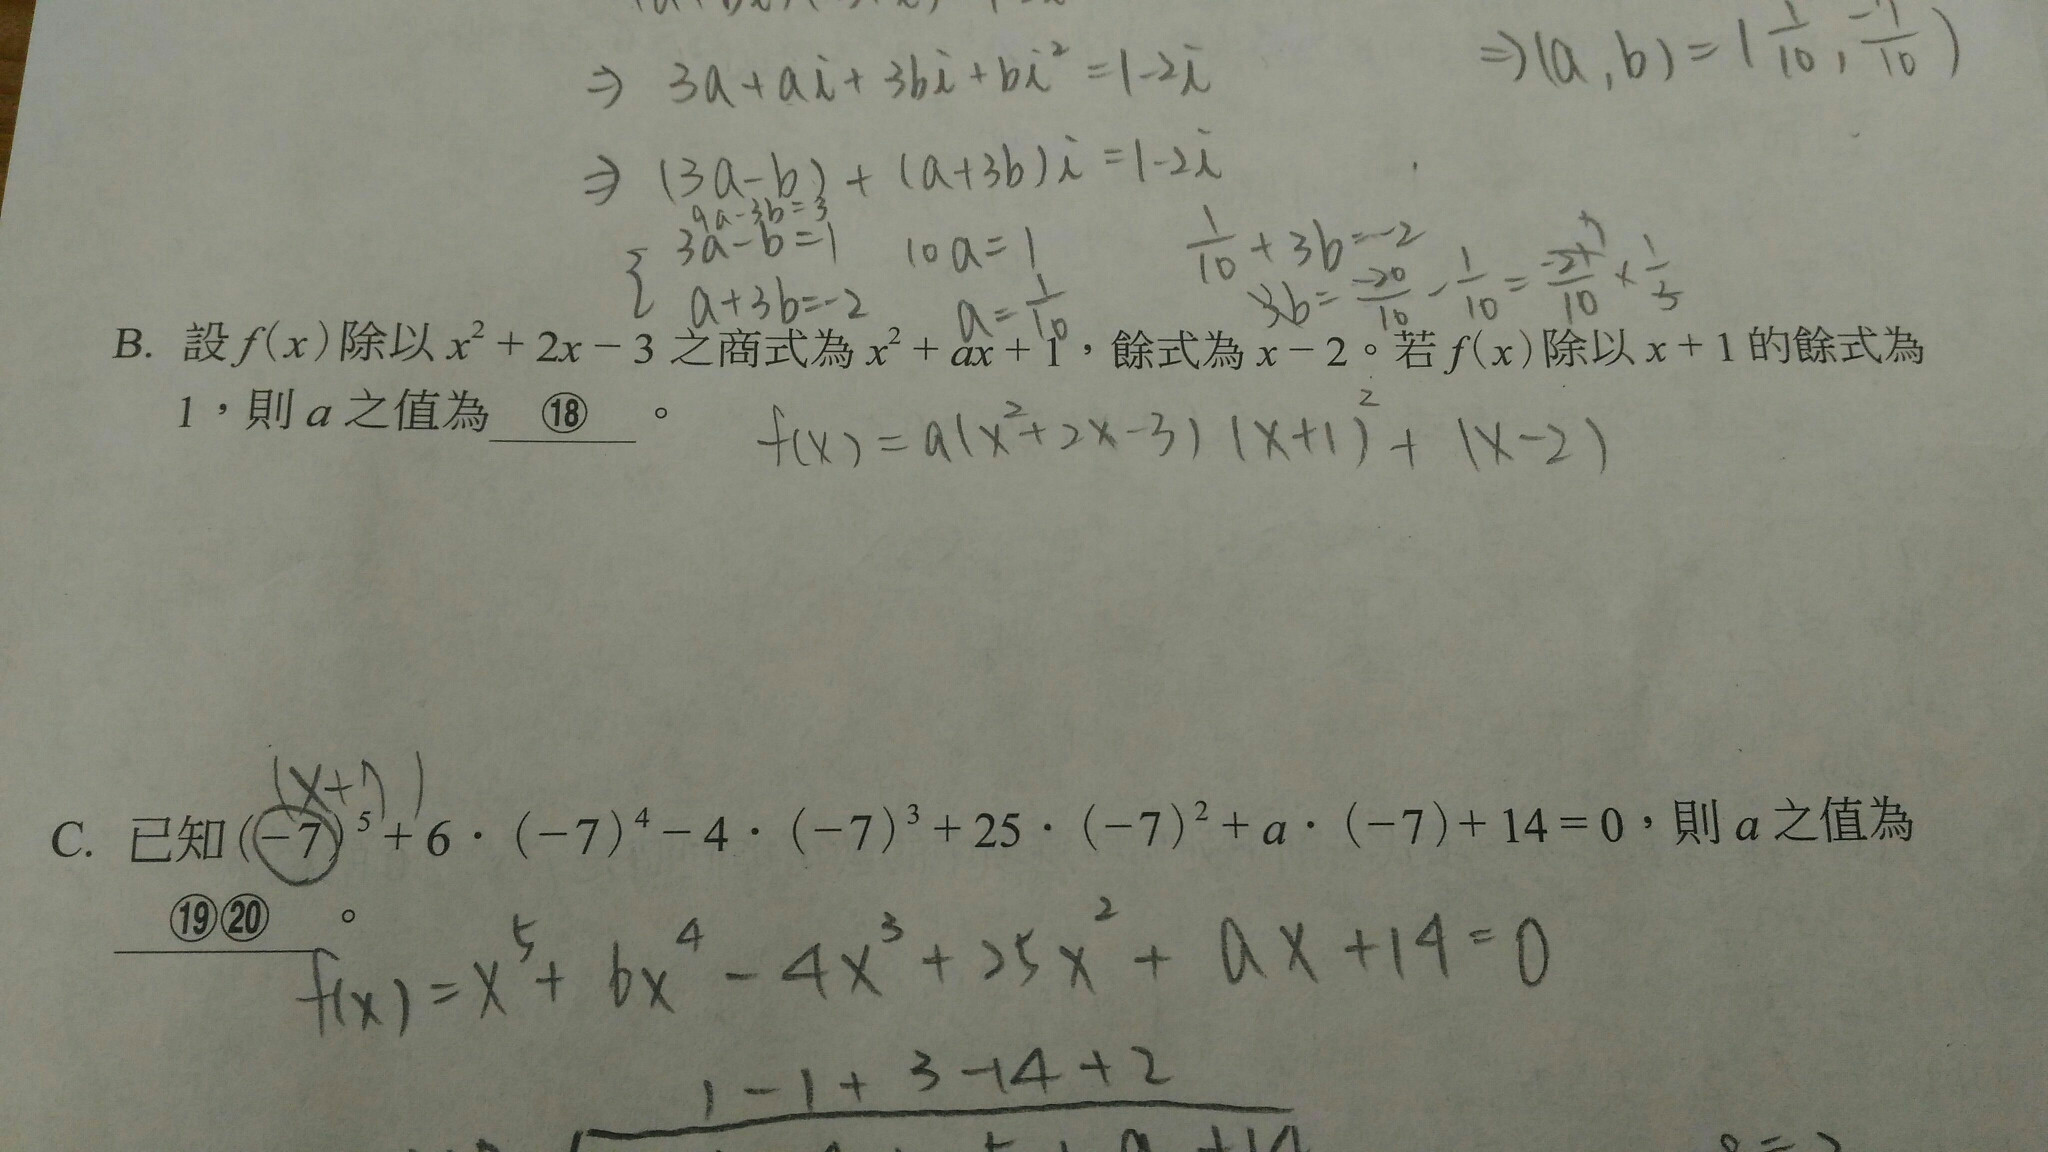 ⇒ 3a+ai+3bi+bi²=1-2i
⇒(a,b)=(1/10, -7/10)
⇒ (3a-b)+(a+3b)i=1-2i
9a-3b=3
3a-b=1
10a=1
1/10+3b=-2
a+3b=-2
a=1/10
3b=-20/10-1/10=-21/10×1/3
B. 設f(x)除以x²+2x-3之商式為x²+ax+1，餘式為x-2。若f(x)除以x+1的餘式為
1，則a之值為 ⑱ 。
f(x)=a(x²+2x-3)(x+1)²+(x-2)
(x+7)
C. 已知(-7)⁵+6·(-7)⁴-4·(-7)³+25·(-7)²+a·(-7)+14=0，則a之值為
⑲⑳ 。
f(x)=x⁵+6x⁴-4x³+25x²+ax+14=0
1-1+3-14+2